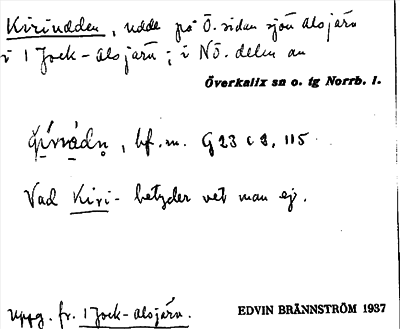 Kirinudden, udde på Ö. sidan sjön Alsjärn
i 1 Jock-alsjärn; i NÖ. delen av
Överkalix sn o. tg Norrb. l.
bf. m. G 23 c 2, 115
Vad Kiri- betyder vet man ej.
Uppg. fr. 1 Jock-alsjärn.
EDVIN BRÄNNSTRÖM 1937